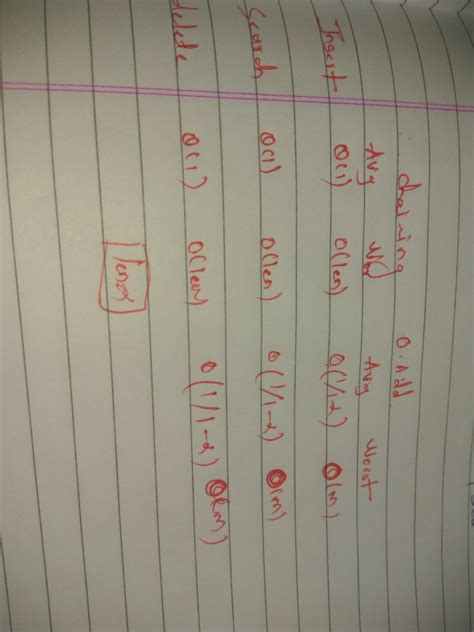 chaining O. Add
Avg Avg Worst
Insert O(1) O(len) O(1/1-α) O(m)
Search O(1) O(len) O(1/1-α) O(m)
delete O(1) O(len) O(1/1-α) O(m)